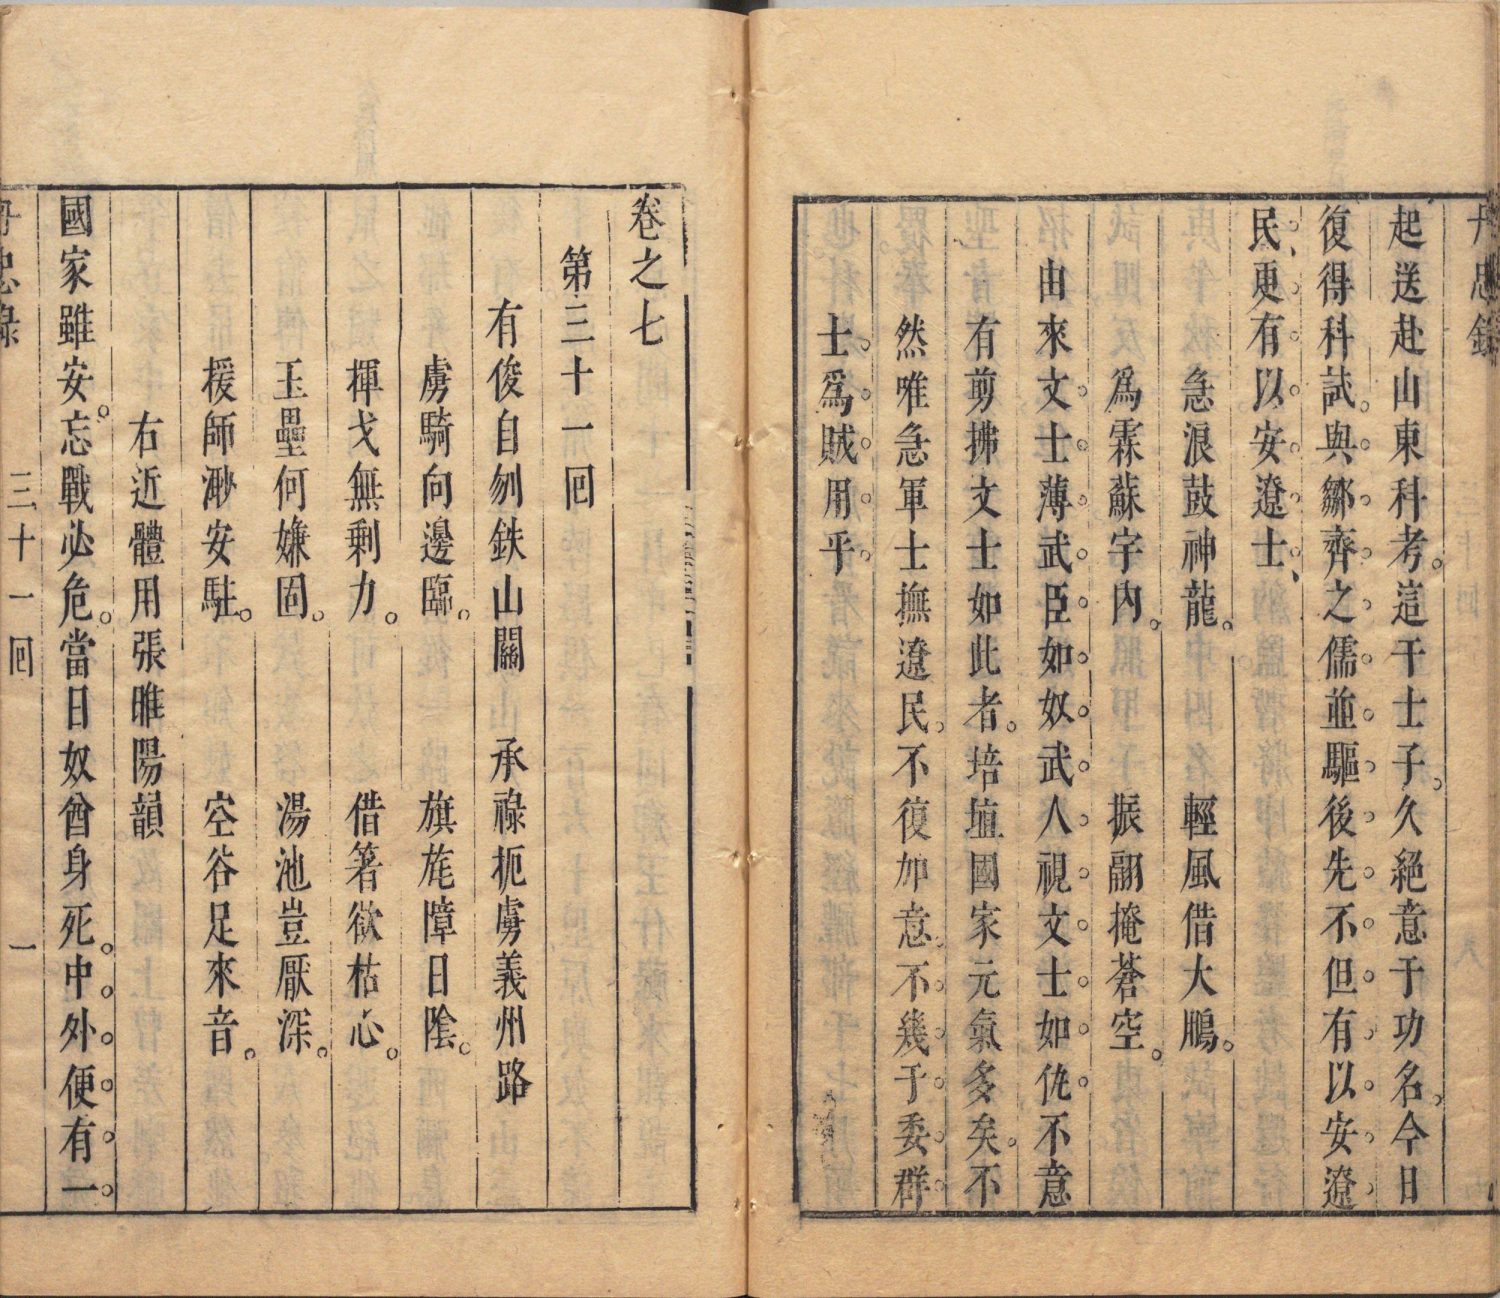 丹忠錄
起送赴山東科考。這干士子。久絕意于功名。今日
復得科試。與鄒齊之儒並驅後先不但有以安遼
民、更有以安遼士、
急浪鼓神龍。輕風借大鵬。
爲霖蘇宇內。振翮掩蒼空。
由來文士薄武臣如奴武人視文士如仇不意
有剪拂文士如此者。培埴國家元氣多矣。不
然唯急軍士撫遼民。不復加意不幾于委群
士爲賊用乎
卷之七
第三十一回
有俊自刎鉄山關　承祿扼虜義州路
虜騎向邊臨。旗旄障日陰。
揮戈無剩力。借箸欲枯心。
玉壘何嫌固。湯池豈厭深。
援師渺安駐。空谷足來音。
右近體用張睢陽韻
國家雖安。忘戰必危。當日奴酋身死。中外便有一
丹忠錄
三十一回
一